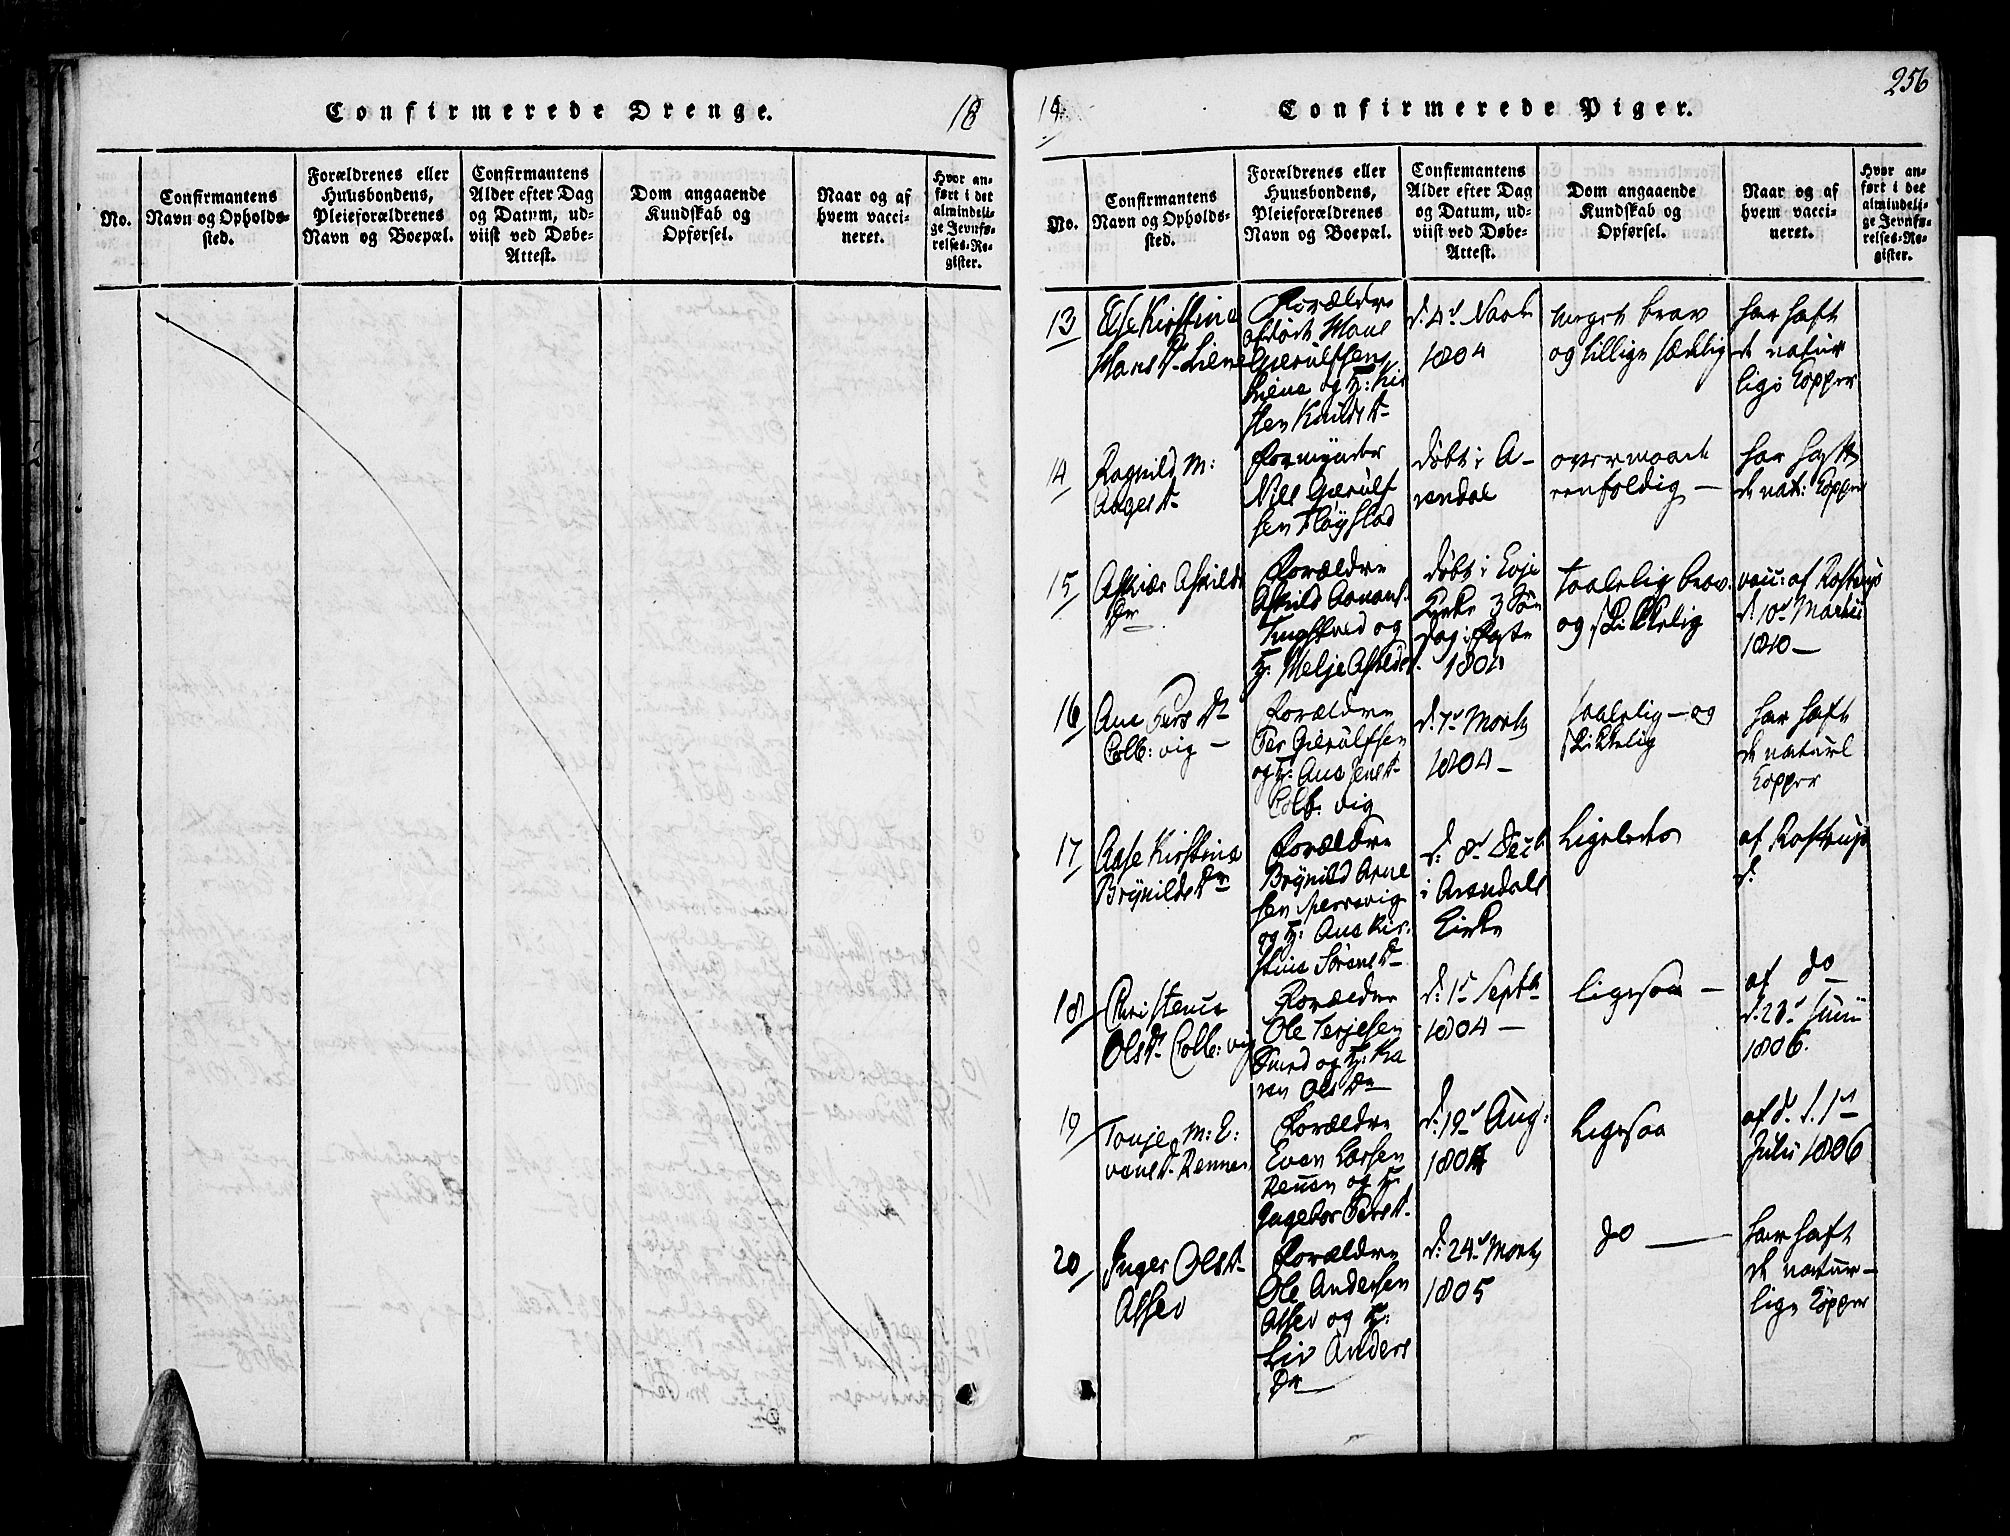 Confirmerede Drenge.
18
No.
Confirmantens
Navn og Opholds-
sted.
Forældrenes eller
Huusbondens,
Pleieforældrenes
Navn og Boepæl.
Confirmantens
Alder efter Dag
og Datum, ud-
viist ved Døbe-
Attest.
Dom angaaende
Kundskab og
Opførsel.
Naar og af
hvem vacci-
neret.
Hvor an-
ført i det
almindeli-
ge Jevnfø-
relses-Re-
gister.
19
Confirmerede Piger.
256
No.
Confirmantens
Navn og Opholds-
sted.
Forældrenes eller
Huusbondens,
Pleieforældrenes
Navn og Boepæl.
Confirmantens
Alder efter Dag
og Datum, ud-
viist ved Døbe-
Attest.
Dom angaaende
Kundskab og
Opførsel.
Naar og af
hvem vacci-
neret.
Hvor an-
ført i det
almindeli-
ge Jevnfø-
relses-Re-
gister.
13
Else Kirstina
Hans D.
Forældre
afdøde Hans
Gierulfsen
og H: Kir
sten Knuds D
1804
meget brav
og tillige sædelig
har haft
de natur
lige Kopper
14
Ragnild M:
Aages D
Formynder
Nils Gierulf
sen Fløystad
døbt i A-
rendal
overmaade
eenfoldig —
har haft
de nat: Kopper
15
Forældre
og
døbt i Evje
Kirke 3 Søn
dag i Faste
1804
Taalelig brav
og skikkelig
vacc: af Rostrup
d. 10 Martii
1810 —
16
Ane Pers D
Colb: vig —
Forældre
Per Gierulfsen
og H: Ane Jens D
Colb: vig
d. 7 Marts
1804 —
taalelig — og
skikkelig
har haft
de naturl
Kopper
17
Aase Kirstine
Brynilds D
Forældre
Brynild Arne
sen
og H: Ane Kir-
stine Sørens D
d: 8 Decb
i Arendals
Kirke
Ligeledes
af Rostrup
d.
18
Christence
Ols D Colb: vig
Forældre
Ole Terjesen
Smed og H: Ka
ren Ols D
d: 1 Septb
1804 —
ligesaa —
af do
Junii
1806.
19
Tonje M: E:
vens D
Forældre
Even Larsen
og H
Ingebor Pers D.
d. 19 Aug:
1804
Ligesaa
af do d. 1
Julii 1806
20
Inger Ols D
Assev
Forældre
Ole Andersen
Assev og H:
Liv Anders
D
d: 24 Marts
1805
do —
har haft
de natur-
lige Kopper